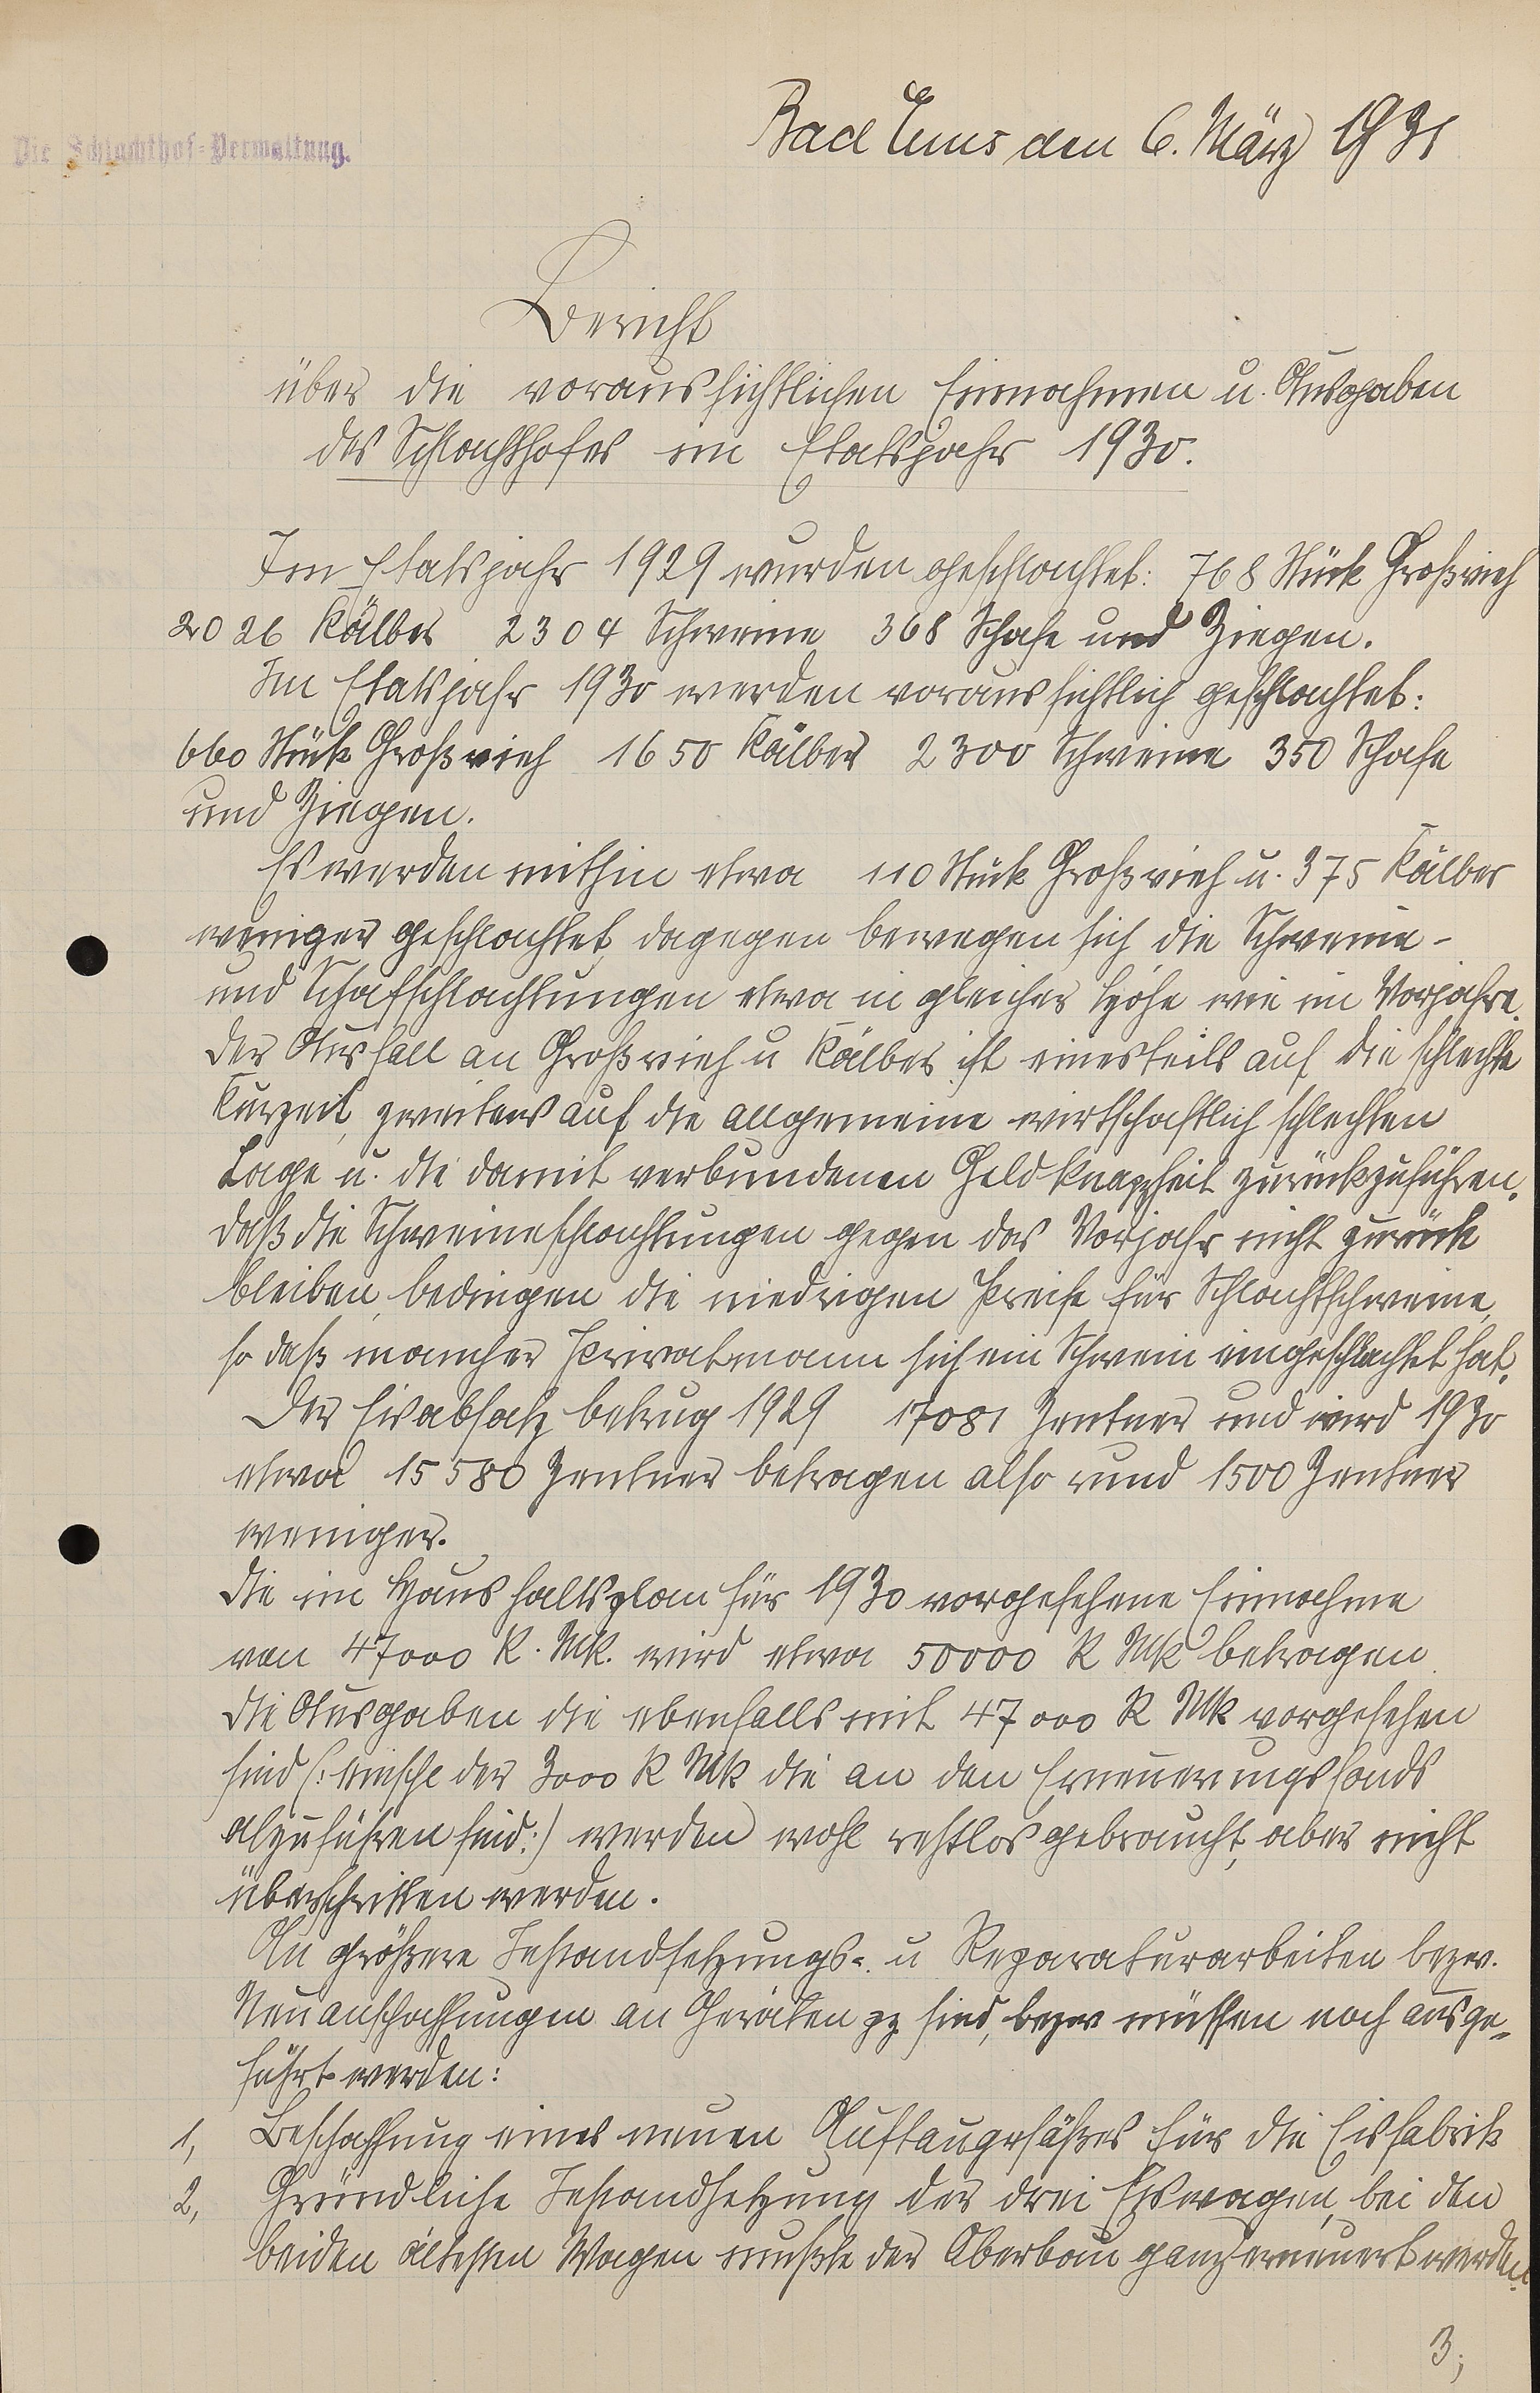 Die Schlachthof-Verwaltung.
Bad Ems den 6. März 1931
Bericht
über die voraussichtlichen Einnahmen u. Ausgaben
des Schlachthofes im Etatsjahr 1930.
Im Etatsjahr 1929 wurden geschlachtet: 768 Stück Großvieh
2026 Kälber 2304 Schweine 368 Schafe und Ziegen.
Im Etatsjahr 1930 werden voraussichtlich geschlachtet:
660 Stück Großvieh 1650 Kälber 2300 Schweine 350 Schafe
und Ziegen.
Es werden mithin etwa 110 Stück Großvieh u. 375 Kälber
weniger geschlachtet, dagegen bewegen sich die Schweine-
und Schafschlachtungen etwa in gleicher Höhe wie im Vorjahre.
Der Ausfall an Großvieh u Kälber ist einesteils auf die schlechte
Kurzeit, zweitens auf die allgemeine wirtschaftlich schlechten
Lage u. die damit verbundenen Geldknappheit zurückzuführen.
Daß die Schweineschlachtungen gegen das Vorjahr nicht zurück
bleiben, bedingen die niedrigen Preise für Schlachtschweine,
so daß mancher Privatmann sich ein Schwein eingeschlachtet hat.
Der Eisabsatz betrug 1929 17081 Zentner und wird 1930
etwa 15580 Zentner betragen also rund 1500 Zentner
weniger.
Die im Haushaltsplan für 1930 vorgesehene Einnahme
von 47000 R. Mk. wird etwa 50000 R Mk betragen.
Die Ausgaben die ebenfalls mit 47000 R Mk vorgesehen
sind (: einschl der 3000 R Mk die an den Erneuerungsfonds
abzuführen sind:) werden wohl restlos gebraucht, aber nicht
überschritten werden.
An größere Instandsetzungs- u Reparaturarbeiten bezw.
Neuanschaffungen an Geräten pp sind, bezw müssen noch ausge-
führt werden:
1, Beschaffung eines neuen Auftaugefäßes für die Eisfabrik
2, Gründliche Instandsetzung der drei Eiswagen, bei den
beiden ältesten Wagen mußte der Oberbau ganz erneuert werden.
3,